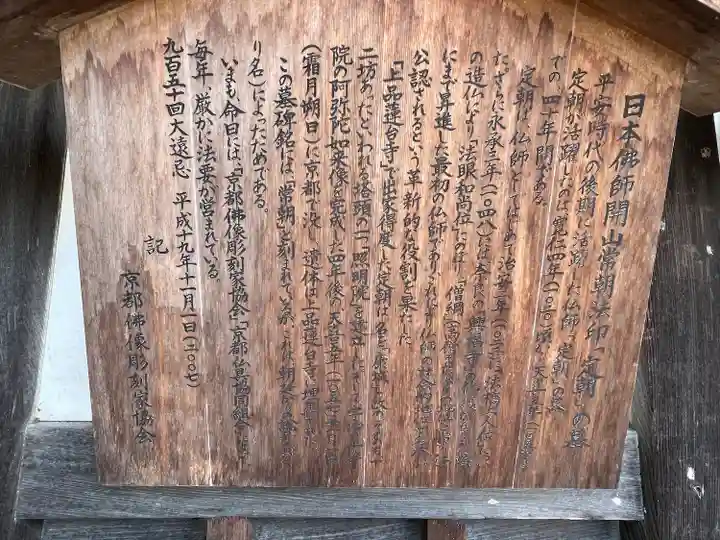 日本佛師開山常朝法印「定朝」の墓
平安時代の後期に活躍した仏師「定朝」の墓
定朝が活躍したのは、寛仁四年(一〇二〇)頃から天喜五年(一〇五七)ま
での四十年間である。
定朝は仏師としてはじめて治安二年(一〇二二)に法橋に
た.さらに永承三年(一〇四八)には奈良の興福寺の
の造仏により「法眼和尚位」
にまで昇進した最初の仏師であり、仏師の社会的地位が
公認されるという革新的な役割を果した
「上品蓮台寺」で出家得度した定朝は名を
二坊あったといわれる塔頭の一つ「照明院」を建立し
院の阿弥陀如来像を完成した四年後の天喜五年(一〇五七)十一月一日
(霜月朔日)に京都で没し、遺体は上品蓮台寺に埋葬された。
この墓碑銘には、「常朝」と刻まれているが、これは
り名」によったためである。
いまも、命日には、「京都佛像彫刻家協会」「京都仏具協同組合」
毎年、厳かに法要が営まれている。
九百五十回大遠忌 平成十九年十一月一日(二〇〇七)
記
京都佛像彫刻家協会